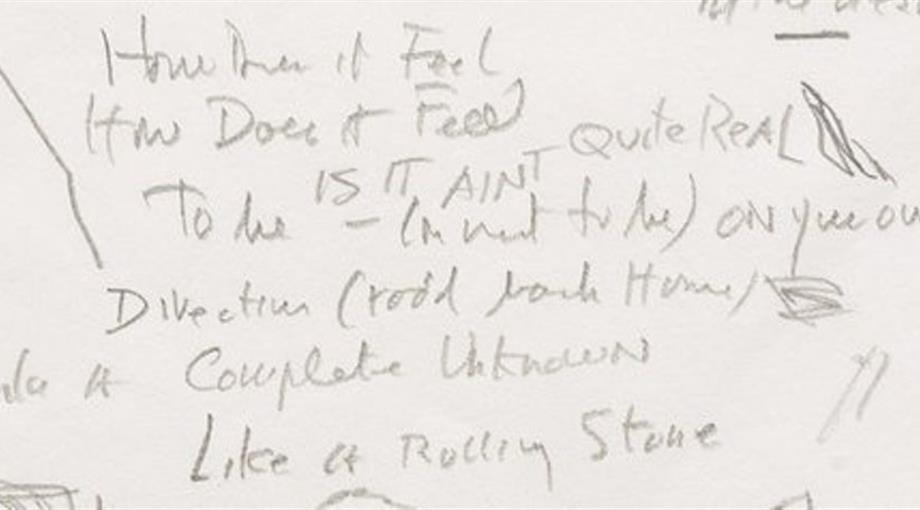 How Does it Feel
How Does it Feel
IS IT AINT Quite Real
To be – (or not to be) ON you ow
Direction (road back Home)
a Complete Unknown
Like a Rolling Stone